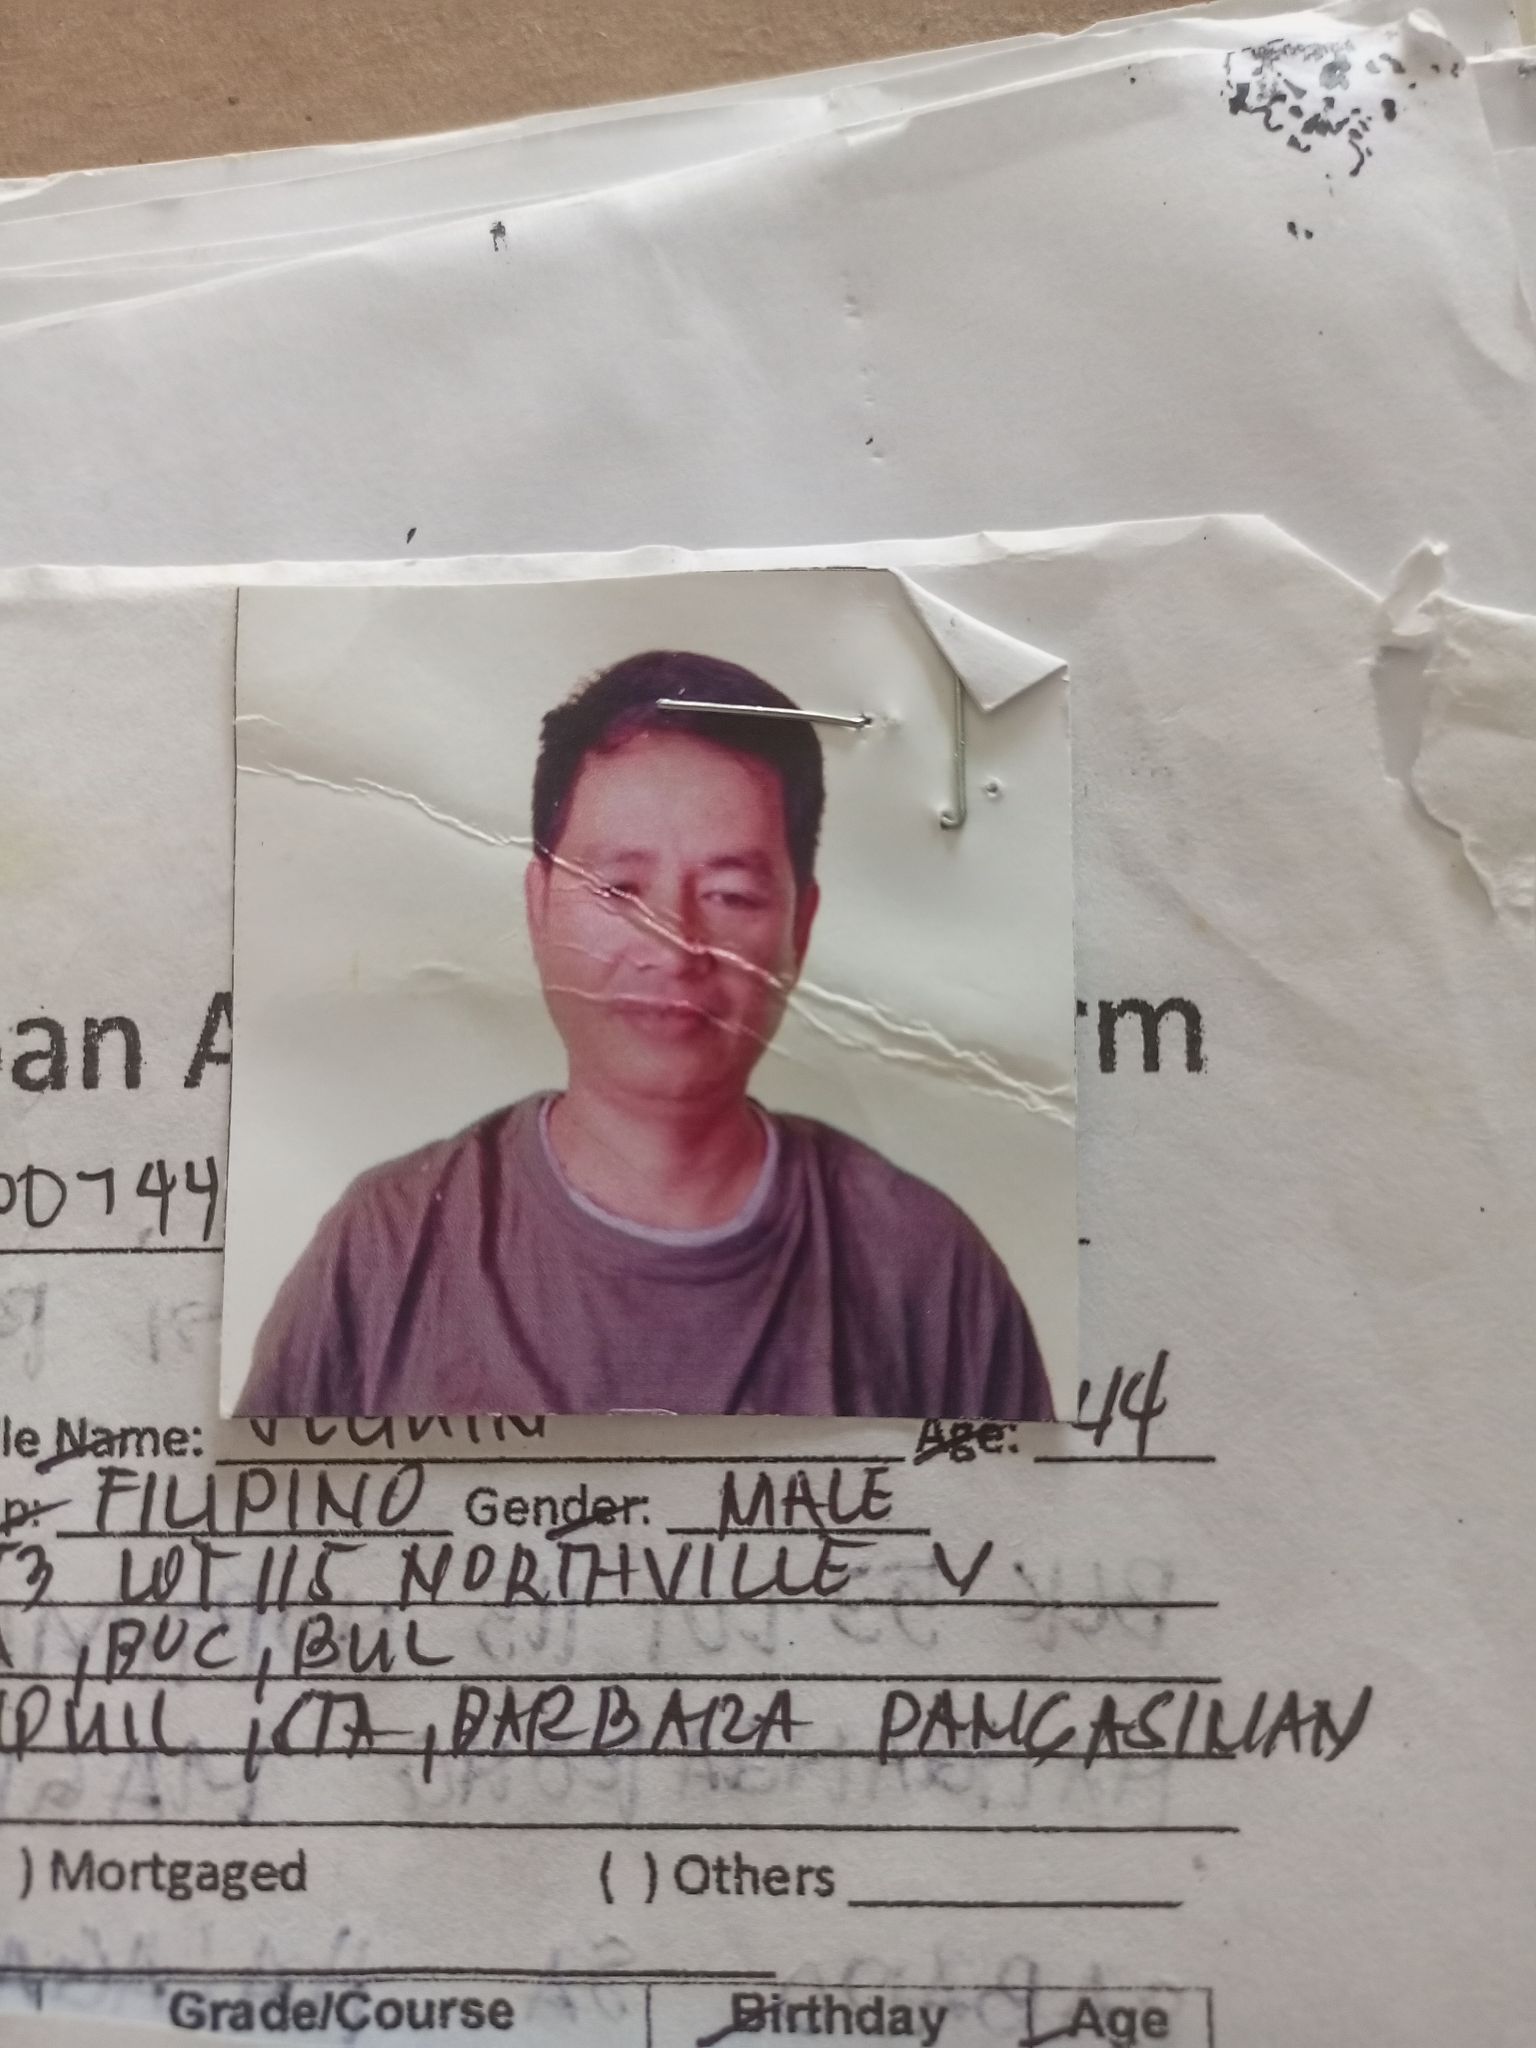 an A rm
00744
le Name: Age: 44
p: FILIPINO Gender: MALE
3 LOT 115 NORTHVILLE V
, BUC, BUL
, STA, BARBARA PANGASINAN
) Mortgaged ( ) Others
Grade/Course Birthday Age